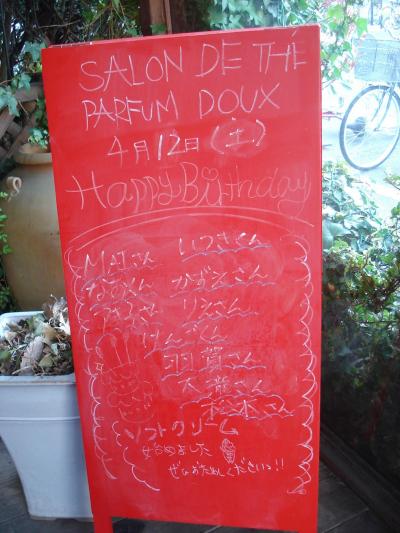 SALON DE THÉ
PARFUM DOUX
4月12日(土)
Happy Birthday
MAIさん いつきくん
なおくん かずえさん
りえさん
けんごくん
羽賀さん
さん
松本さん
ソフトクリーム
始めました
ぜひおためしくださいっ!!